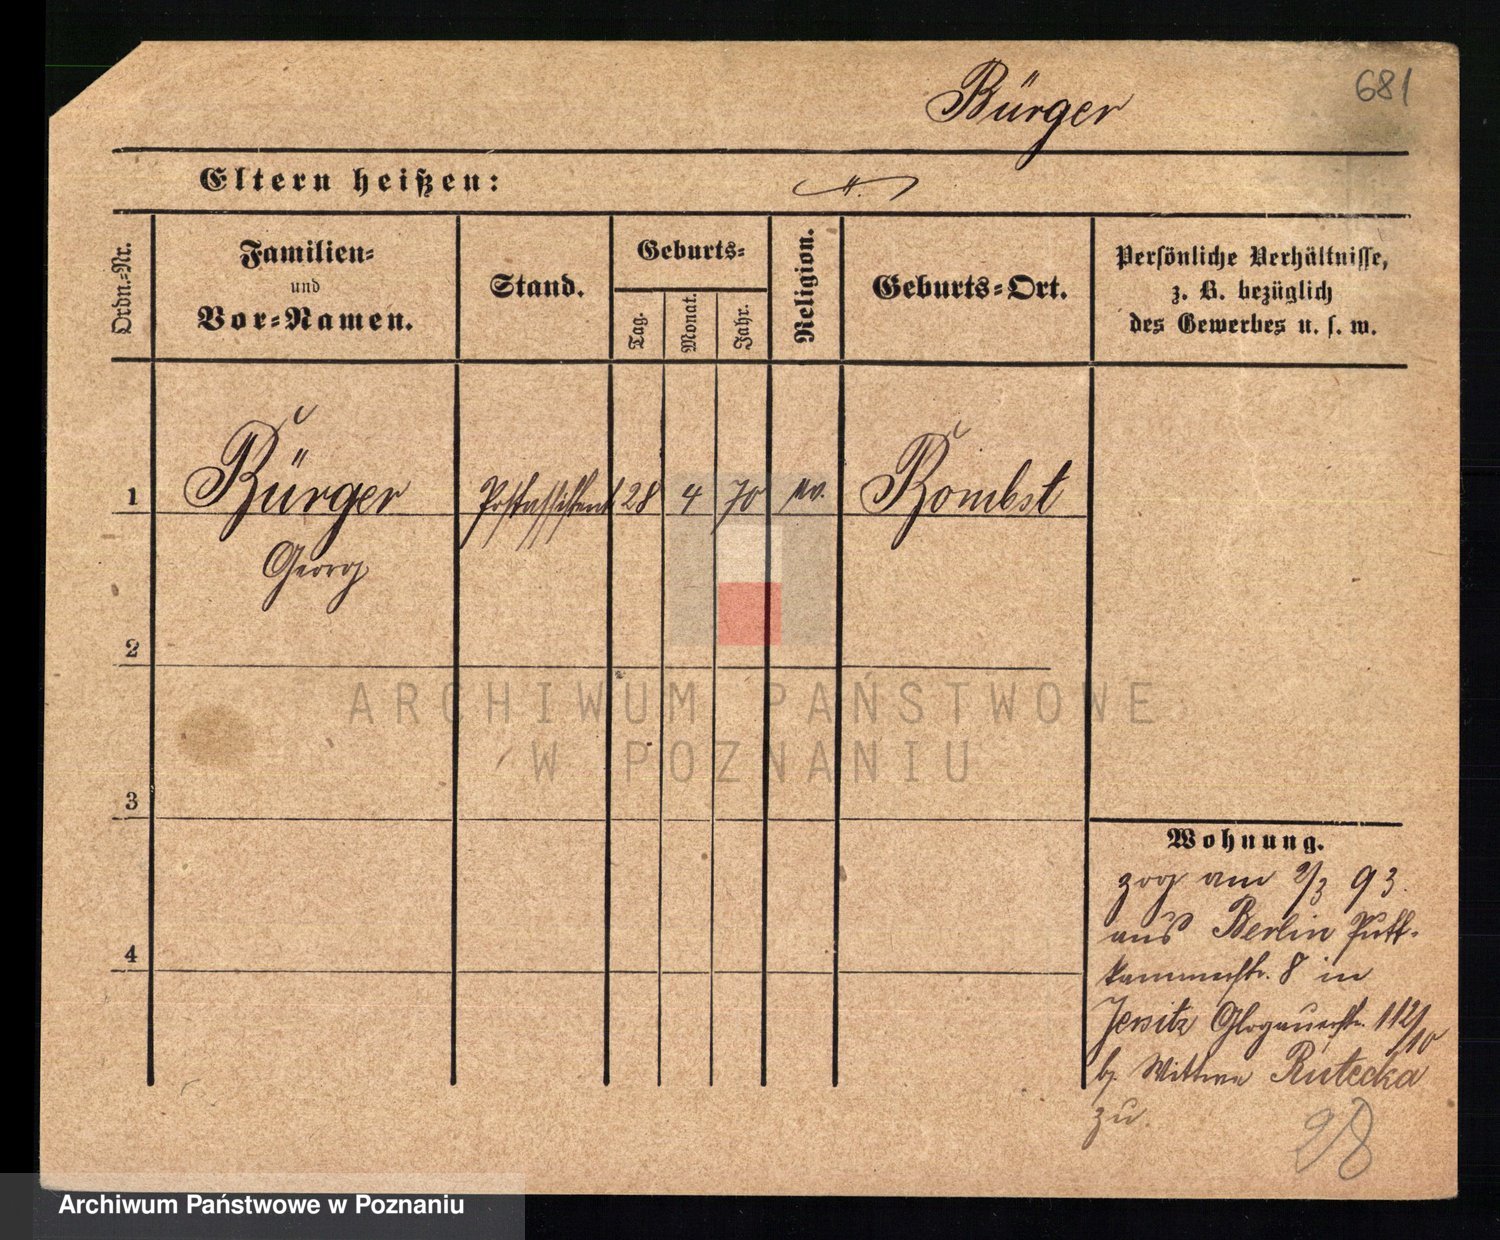 681
Bürger
Eltern heißen:
Ordn.-Nr.
Familien-
und
Vor-Namen.
Stand.
Geburts-
Tag.
Monat.
Jahr.
Religion.
Geburts-Ort.
Persönliche Verhältnisse,
z. B. bezüglich
des Gewerbes u. s. w.
1 Bürger Postassistent 28 4 70 ev. Bombst
Georg
2
3
4
Wohnung.
zog am 2/3 93.
aus Berlin Putt-
kammerstr. 8 in
Jersitz Glogauerstr. 112/10
b. Wittwe Rutecka
zu.
28
ARCHIWUM PAŃSTWOWE
W POZNANIU
Archiwum Państwowe w Poznaniu